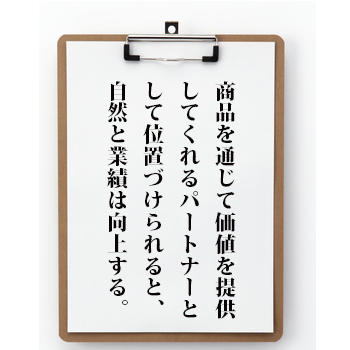 商品を通じて価値を提供
してくれるパートナーと
して位置づけられると、
自然と業績は向上する。